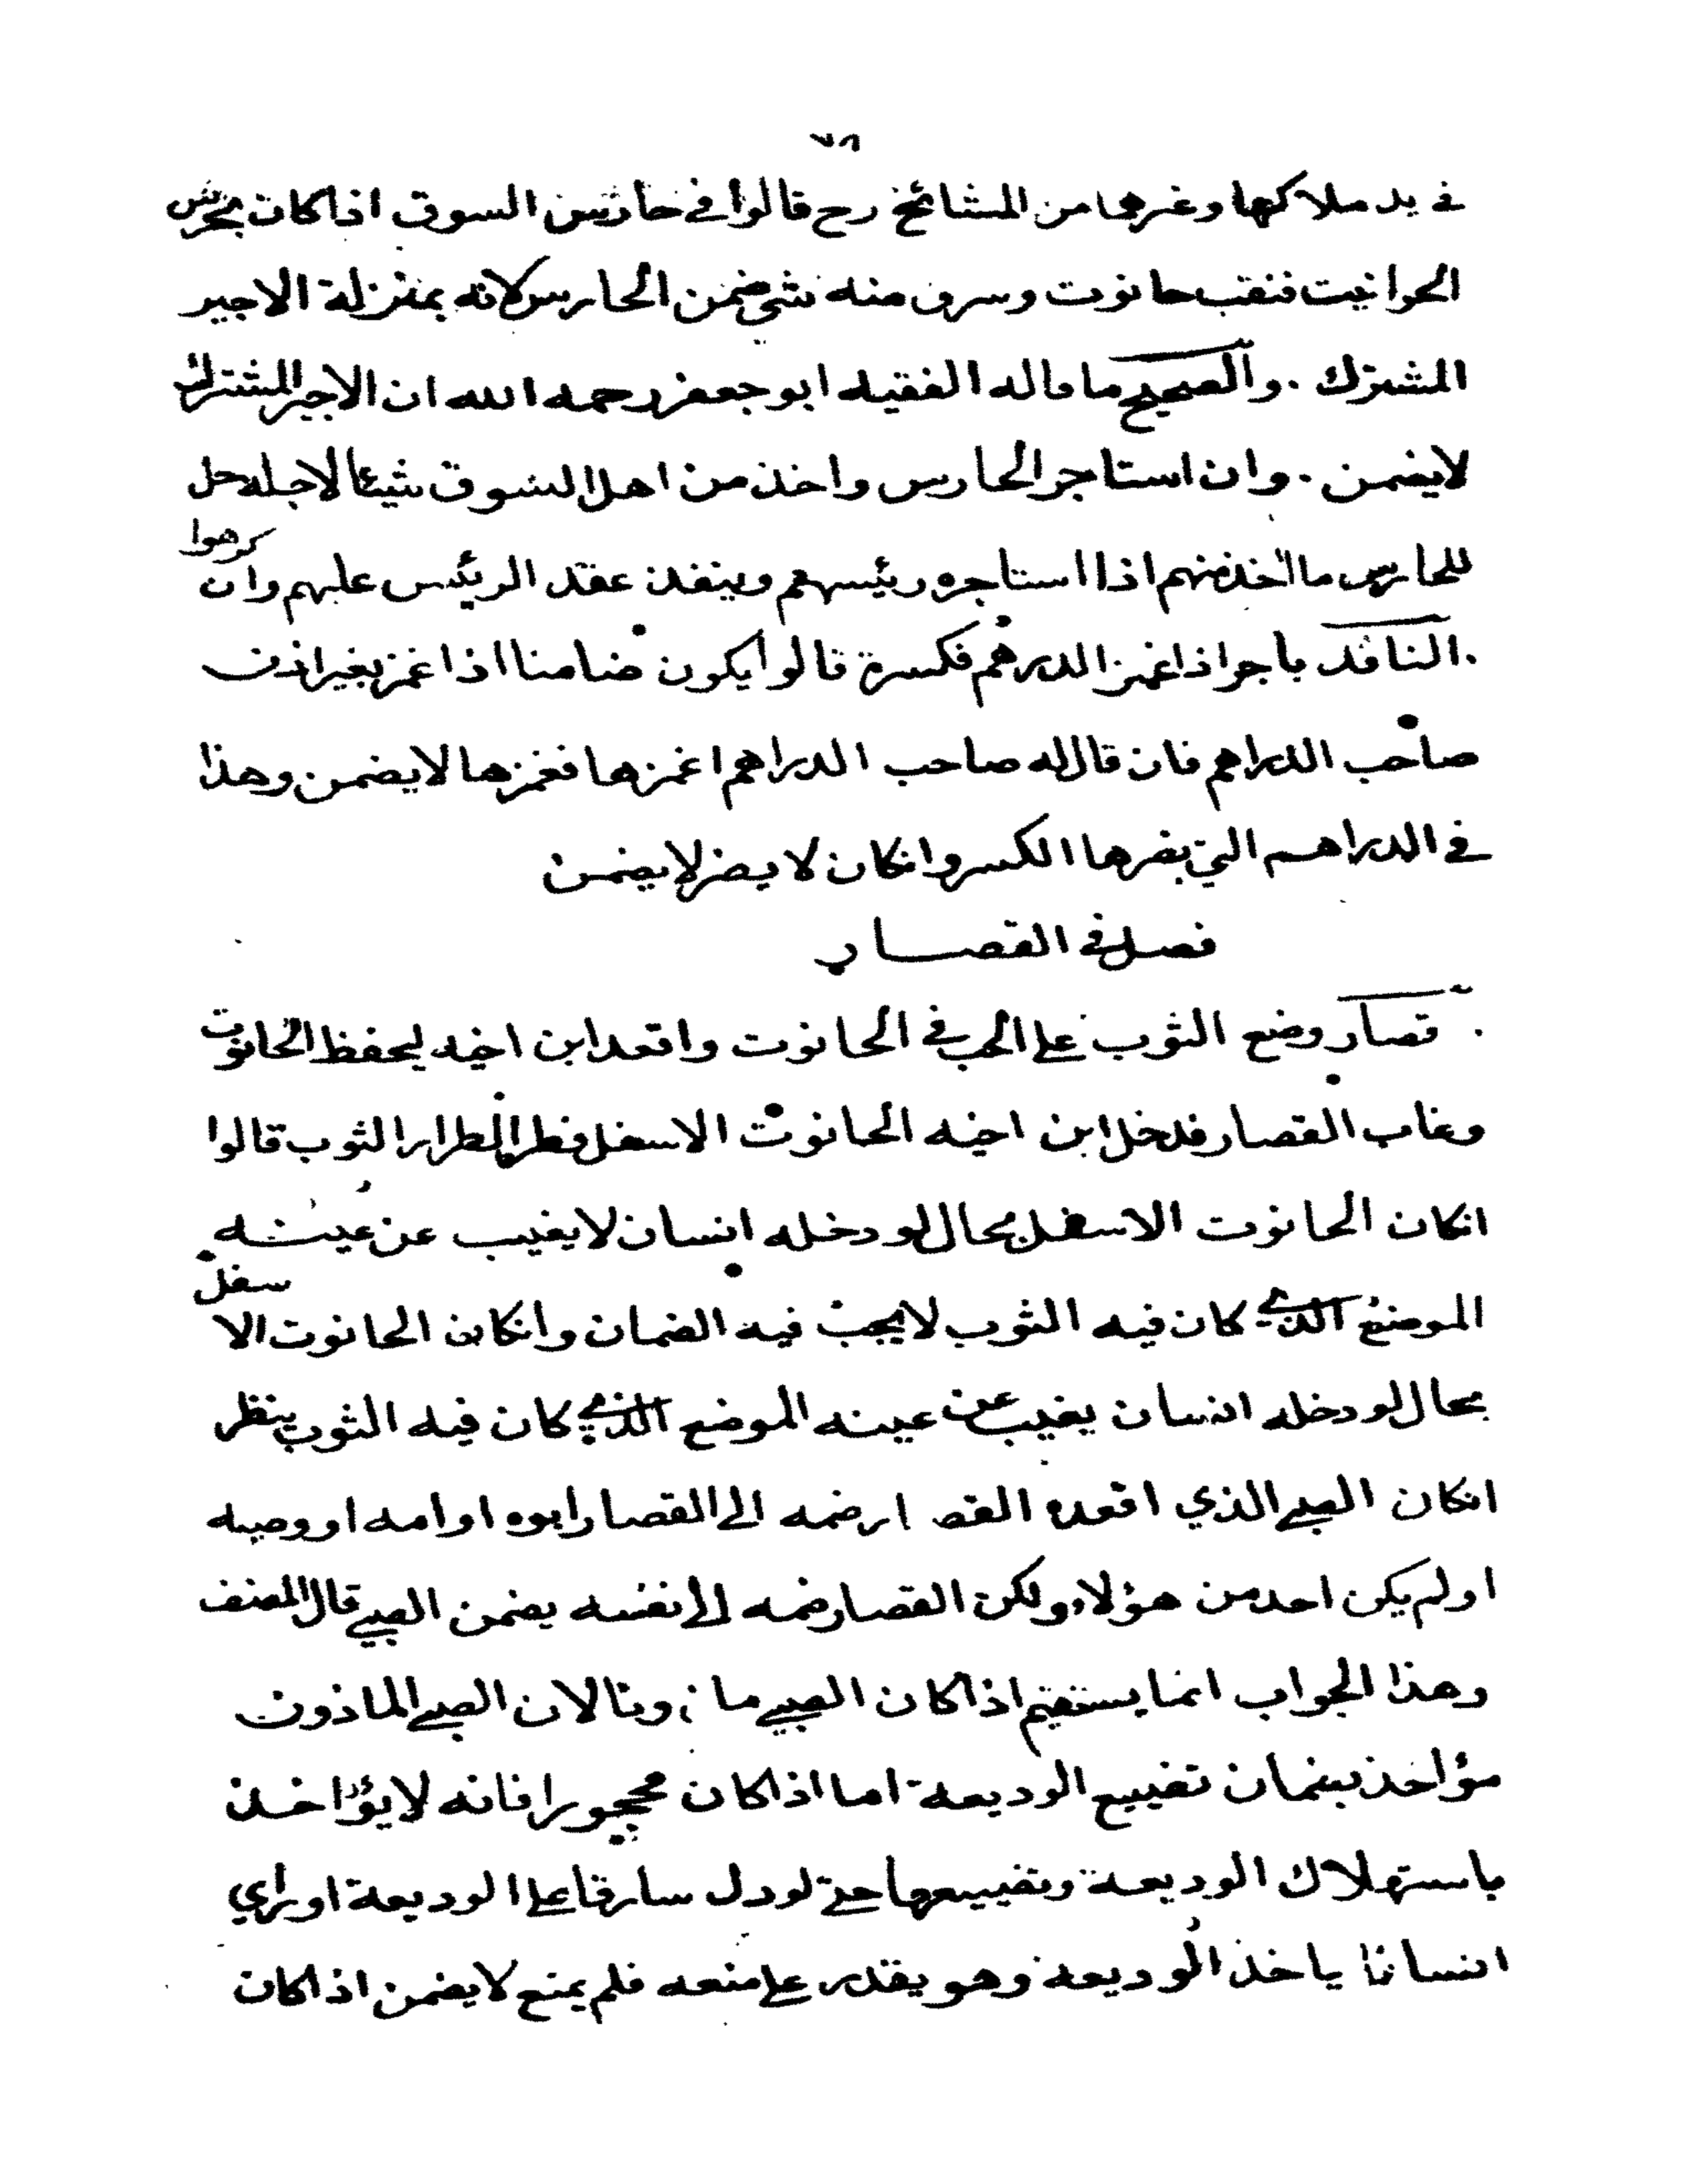 ٧٨
في يد ملاكها وغيرهما من المشائخ رح قالوا في حارس السوق اذا كان يحرس
الحوانيت فنقب حانوت وسرق منه شي ضمن الحارس لانه بمنزلة الاجير
المشترك . والصحيح ما قاله الفقيه ابو جعفر رحمه الله ان الاجير المشترك
لا يضمن . وان استاجر الحارس واخذ من اهل السوق شيئا لاجله حل
للحارس ما اخذ منهم اذا استاجره رئيسهم وينفذ عقد الرئيس عليهم وان كرهوا
. الناقد باجر اذا غمز الدرهم فكسره قالوا يكون ضامنا اذا غمز بغير اذن
صاحب الدراهم فان قال له صاحب الدراهم اغمزها فغمزها لا يضمن وهذا
في الدراهم التي يضرها الكسر وانكان لا يضر لا يضمن
فصل في القصار
. قصار وضع الثوب على الحب في الحانوت واقعد ابن اخيه ليحفظ الحانوت
وغاب القصار فدخل ابن اخيه الحانوت الاسفل فطر الطرار الثوب قالوا
انكان الحانوت الاسفل بحال لو دخله انسان لا يغيب عن عينه
الموضع الذي كان فيه الثوب لا يجب فيه الضمان وانكان الحانوت الاسفل
بحال لو دخله انسان يغيب عن عينه الموضع الذي كان فيه الثوب ينظر
انكان الصبي الذي اقعده القصار ضمه الى القصار ابوه او امه او وصيه
او لم يكن احد من هؤلاء ولكن القصار ضمه الى نفسه يضمن الصبي قال المصنف
وهذا الجواب انما يستقيم اذا كان الصبي ماذونا لان الصبي الماذون
مؤاخذ بضمان تضييع الوديعة اما اذا كان محجورا فانه لا يؤاخذ
باستهلاك الوديعة وتضييعها حتى لو دل سارقا على الوديعة او راي
انسانا ياخذ الوديعة وهو يقدر على منعه فلم يمنع لا يضمن اذا كان